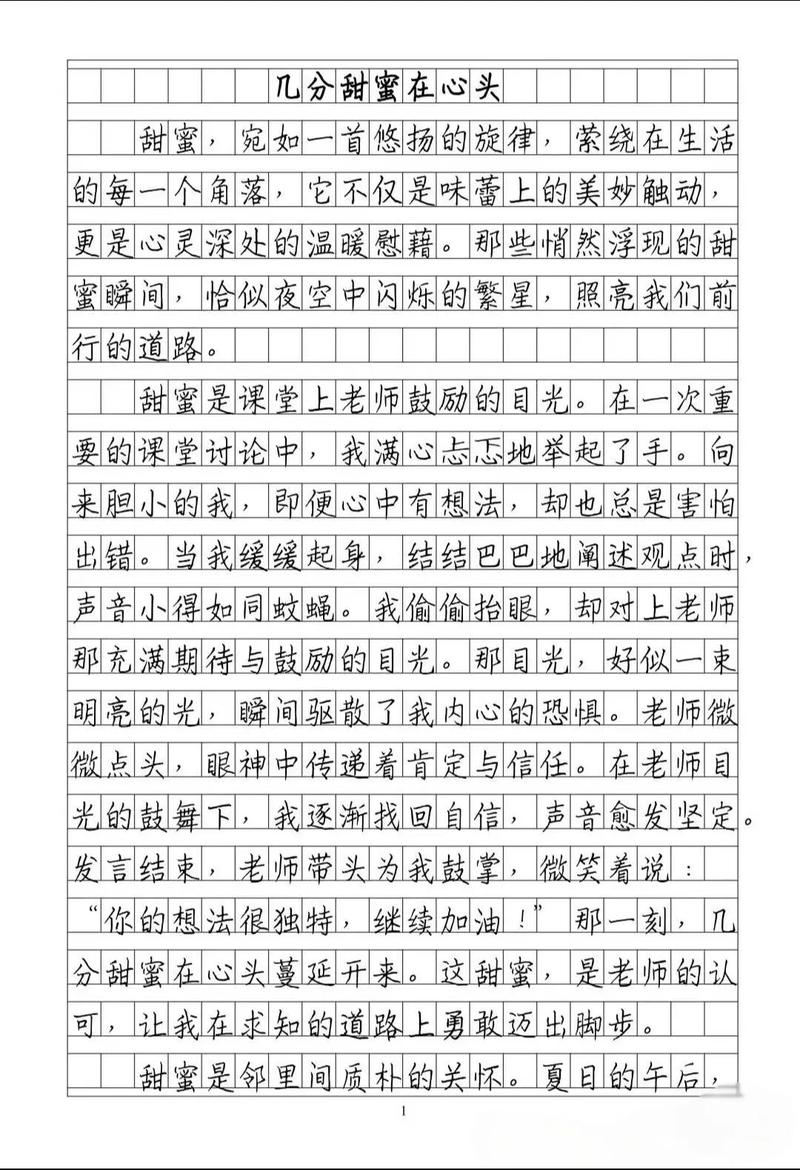 几分甜蜜在心头
甜蜜，宛如一首悠扬的旋律，萦绕在生活
的每一个角落，它不仅是味蕾上的美妙触动，
更是心灵深处的温暖慰藉。那些悄然浮现的甜
蜜瞬间，恰似夜空中闪烁的繁星，照亮我们前
行的道路。
甜蜜是课堂上老师鼓励的目光。在一次重
要的课堂讨论中，我满心忐忑地举起了手。向
来胆小的我，即便心中有想法，却也总是害怕
出错。当我缓缓起身，结结巴巴地阐述观点时，
声音小得如同蚊蝇。我偷偷抬眼，却对上老师
那充满期待与鼓励的目光。那目光，好似一束
明亮的光，瞬间驱散了我内心的恐惧。老师微
微点头，眼神中传递着肯定与信任。在老师目
光的鼓舞下，我逐渐找回自信，声音愈发坚定。
发言结束，老师带头为我鼓掌，微笑着说：
“你的想法很独特，继续加油！”那一刻，几
分甜蜜在心头蔓延开来。这甜蜜，是老师的认
可，让我在求知的道路上勇敢迈出脚步。
甜蜜是邻里间质朴的关怀。夏日的午后，
1